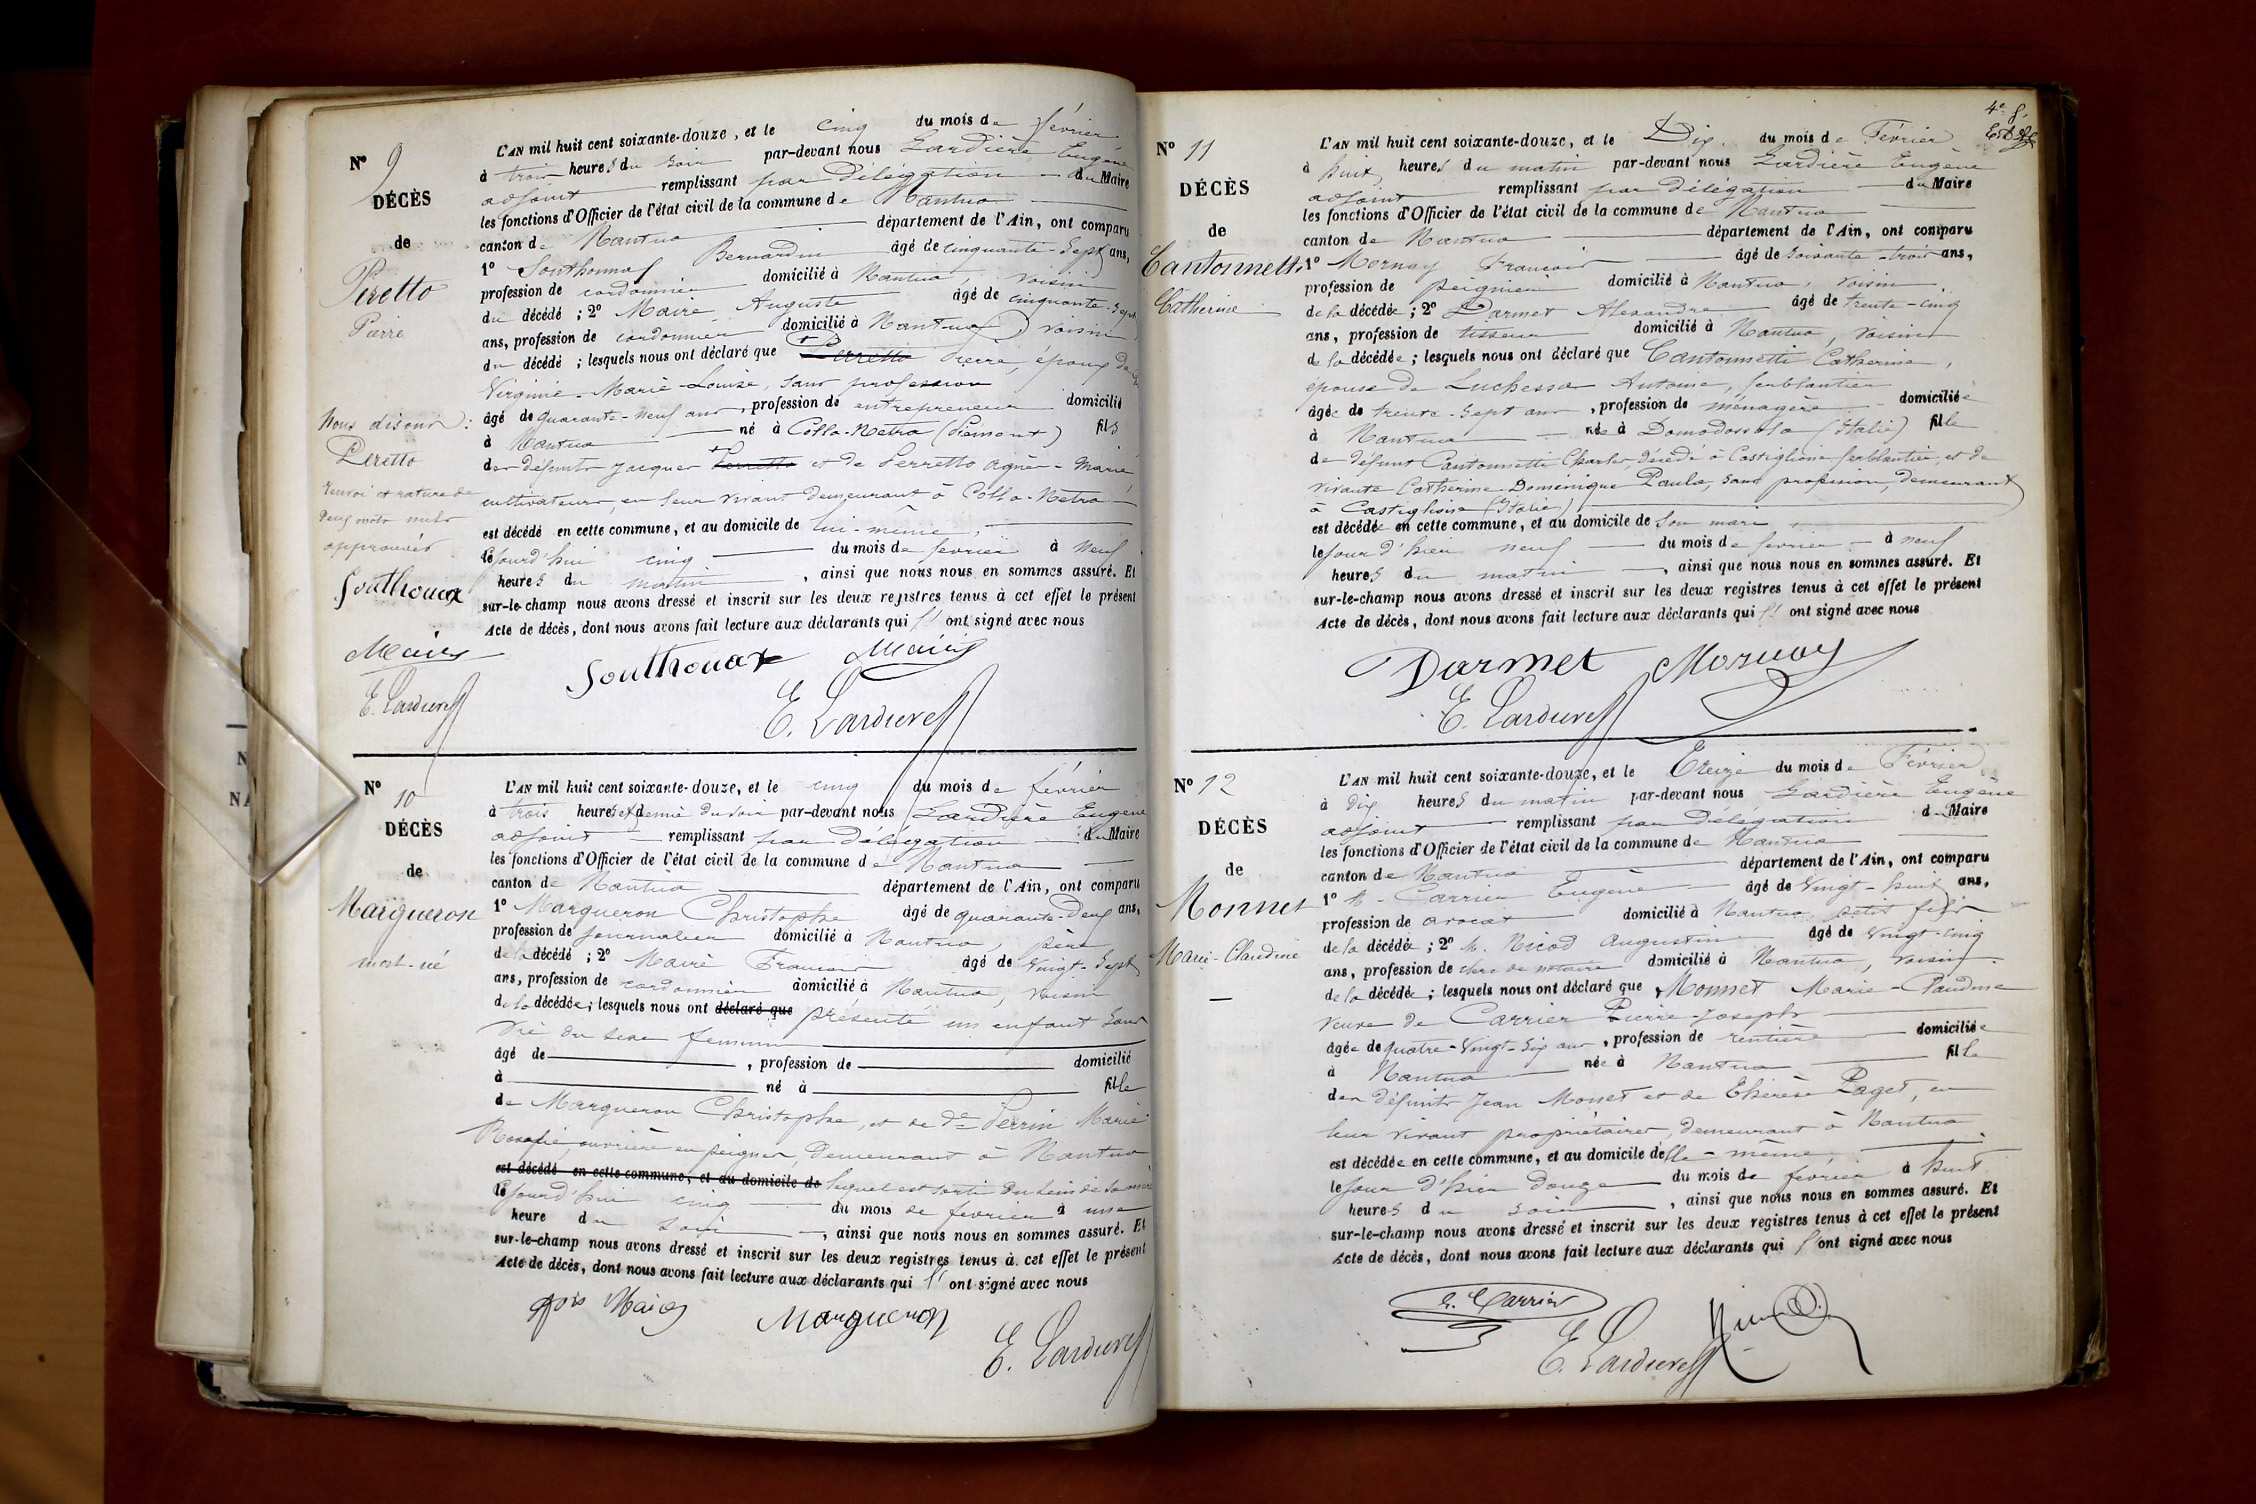 N° 9
DÉCÈS
de
Peretto
Pierre
L'AN mil huit cent soixante-douze, et le cinq du mois de février
à trois heures du soir par-devant nous Lardière Eugène
adjoint remplissant par délégation du Maire
les fonctions d'Officier de l'état civil de la commune de Nantua
canton de Nantua département de l'Ain, ont comparu
1° Southonnax Bernardin âgé de cinquante-sept ans,
profession de cordonnier domicilié à Nantua, voisin
du décédé ; 2° Maire Auguste âgé de cinquante-sept
ans, profession de cordonnier domicilié à Nantua, voisin
du décédé ; lesquels nous ont déclaré que Perretto Pierre, époux de
Virginie-Marie-Louise, sans profession
âgé de quarante-neuf ans, profession de entrepreneur domicilié
à Nantua né à Collo-Retro (Piémont) fils
des défunts Jacques Perretto et de Perretto Agnès-Marie
cultivateurs, en leur vivant demeurant à Collo-Retro
est décédé en cette commune, et au domicile de lui-même,
le jourd'hui cinq du mois de février à neuf
heures du matin, ainsi que nous nous en sommes assuré. Et
sur-le-champ nous avons dressé et inscrit sur les deux registres tenus à cet effet le présent
Acte de décès, dont nous avons fait lecture aux déclarants qui l' ont signé avec nous
Nous disons :
Peretto
renvoi et rature de
deux mots nuls
approuvés
Southonax
Maire
E. Lardière
Southonax Maire
E. Lardière
N° 10
DÉCÈS
de
Margueron
mort-né
L'AN mil huit cent soixante-douze, et le cinq du mois de février
à trois heures et demie du soir par-devant nous Lardière Eugène
adjoint remplissant par délégation du Maire
les fonctions d'Officier de l'état civil de la commune de Nantua
canton de Nantua département de l'Ain, ont comparu
1° Margueron Christophe âgé de quarante-deux ans,
profession de journalier domicilié à Nantua, père
de la décédé ; 2° Maire François âgé de vingt-sept
ans, profession de cordonnier domicilié à Nantua, voisin
de la décédée ; lesquels nous ont déclaré que présenté un enfant sans
vie du sexe féminin
âgé de , profession de domicilié
à né à fille
de Margueron Christophe, et de de Perrin Marie
Rosalie, ouvrière en peignes, demeurant à Nantua
est décédé en cette commune, et au domicile de lequel est sorti du sein de sa mère
le jourd'hui cinq du mois de février à une
heure du soir, ainsi que nous nous en sommes assuré. Et
sur-le-champ nous avons dressé et inscrit sur les deux registres tenus à cet effet le présent
Acte de décès, dont nous avons fait lecture aux déclarants qui l' ont signé avec nous
fçois Maire Margueron
E. Lardière
4e f.
N° 11
DÉCÈS
de
Cantonnetti
Catherine
L'AN mil huit cent soixante-douze, et le Dix du mois de Février
à huit heures du matin par-devant nous Lardière Eugène
adjoint remplissant par délégation du Maire
les fonctions d'Officier de l'état civil de la commune de Nantua
canton de Nantua département de l'Ain, ont comparu
1° Mornay François âgé de soixante-trois ans,
profession de peignier domicilié à Nantua, voisin
de la décédée ; 2° Darmet Alexandre âgé de trente-cinq
ans, profession de tisseur domicilié à Nantua, voisin
de la décédée ; lesquels nous ont déclaré que Cantonnetti Catherine,
épouse de Luchessa Antoine, ferblantier
âgée de trente-sept ans, profession de ménagère domiciliée
à Nantua née à Domodossola (Italie) fille
de défunt Cantonnetti Charles, décédé à Castiglione ferblantier, et de
vivante Catherine Dominique Paula, sans profession, demeurant
à Castiglione (Italie)
est décédée en cette commune, et au domicile de son mari
le jour d'hier neuf du mois de février à neuf
heures du matin, ainsi que nous nous en sommes assuré. Et
sur-le-champ nous avons dressé et inscrit sur les deux registres tenus à cet effet le présent
Acte de décès, dont nous avons fait lecture aux déclarants qui l' ont signé avec nous
Darmet Mornay
E. Lardière
N° 12
DÉCÈS
de
Monnet
Marie-Claudine
L'AN mil huit cent soixante-douze, et le Treize du mois de Février
à dix heures du matin par-devant nous Lardière Eugène
adjoint remplissant par délégation du Maire
les fonctions d'Officier de l'état civil de la commune de Nantua
canton de Nantua département de l'Ain, ont comparu
1° M. Carrier Eugène âgé de vingt-huit ans,
profession de avocat domicilié à Nantua, petit fils
de la décédée ; 2° M. Nicod Augustin âgé de vingt-cinq
ans, profession de clerc de notaire domicilié à Nantua, voisin
de la décédée ; lesquels nous ont déclaré que Monnet Marie-Claudine
veuve de Carrier Pierre-Joseph
âgée de quatre-vingt-six ans, profession de rentière domiciliée
à Nantua née à Nantua fille
des défunts Jean Monet et de Thérèse Paget, en
leur vivant propriétaires, demeurant à Nantua
est décédée en cette commune, et au domicile d'elle-même
le jour d'hier douze du mois de février à huit
heures du soir, ainsi que nous nous en sommes assuré. Et
sur-le-champ nous avons dressé et inscrit sur les deux registres tenus à cet effet le présent
Acte de décès, dont nous avons fait lecture aux déclarants qui l'ont signé avec nous
E. Carrier
E. Lardière